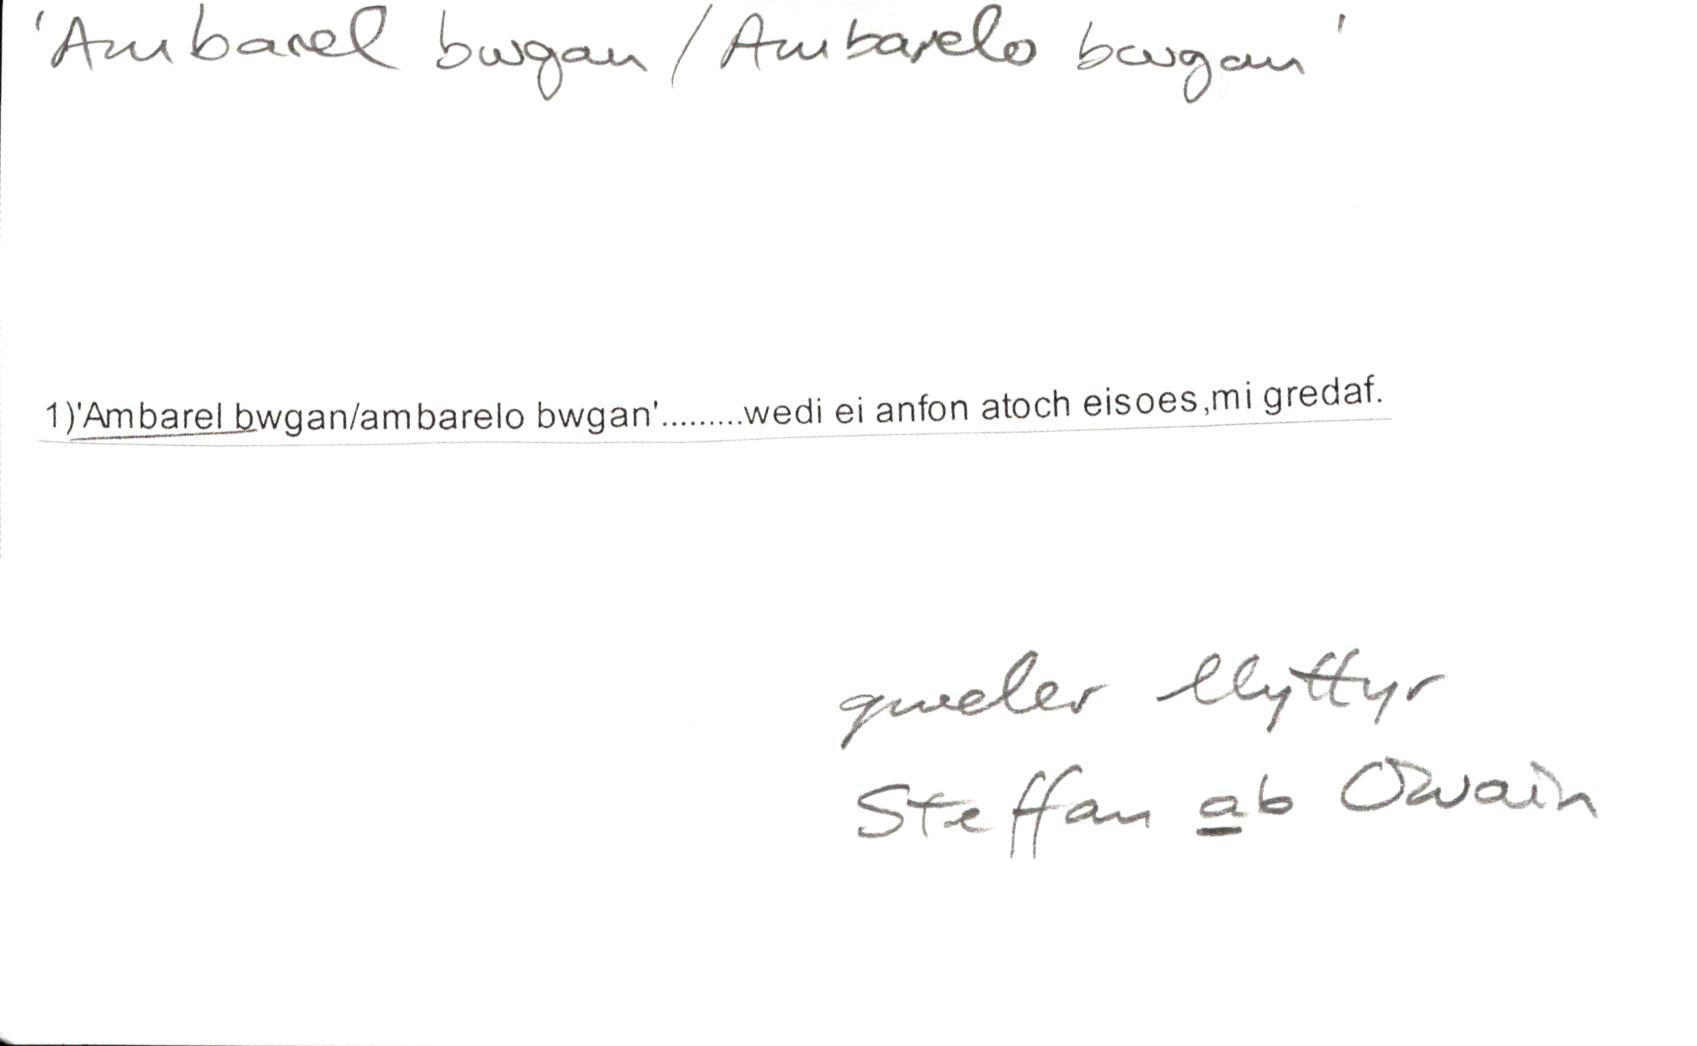 'Ambarel bwgan / Ambarelo bwgan'
1)'Ambarel bwgan/ambarelo bwgan'.........wedi ei anfon atoch eisoes,mi gredaf.
gweler llythyr
Steffan ab Owain